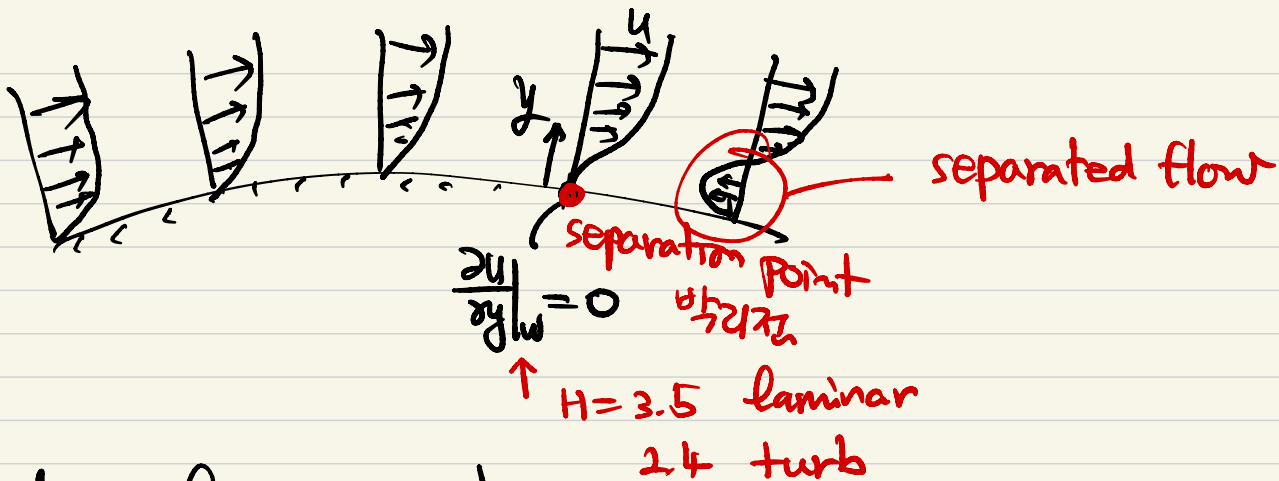 u
y
separated flow
separation point
박리점
∂u/∂y|w = 0
↑
H = 3.5 laminar
2.4 turb